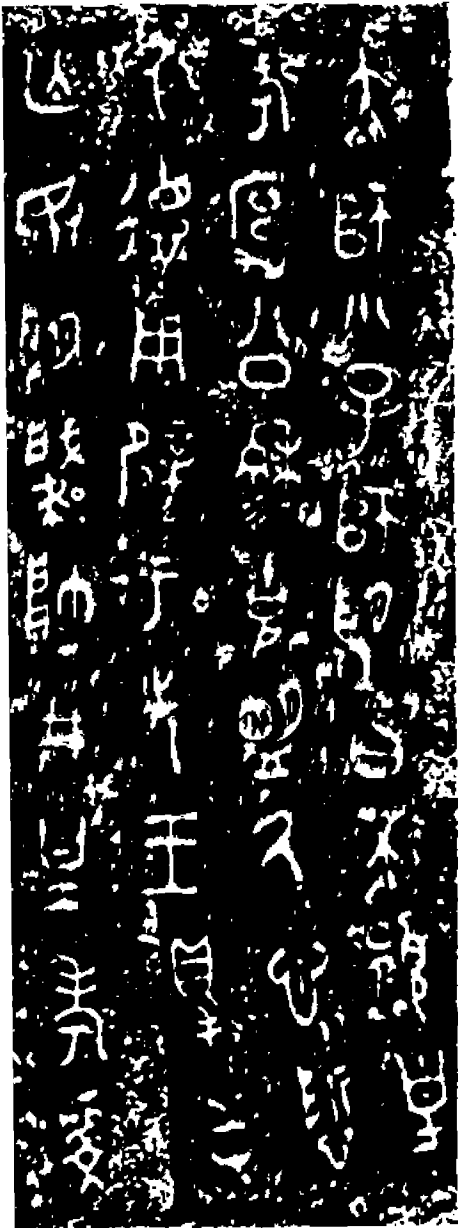 大師小子師望曰不顯皇
考宄公穆穆克盟厥心悊
厥德用辟于先王得屯
亡敃望肇帥井皇考虔